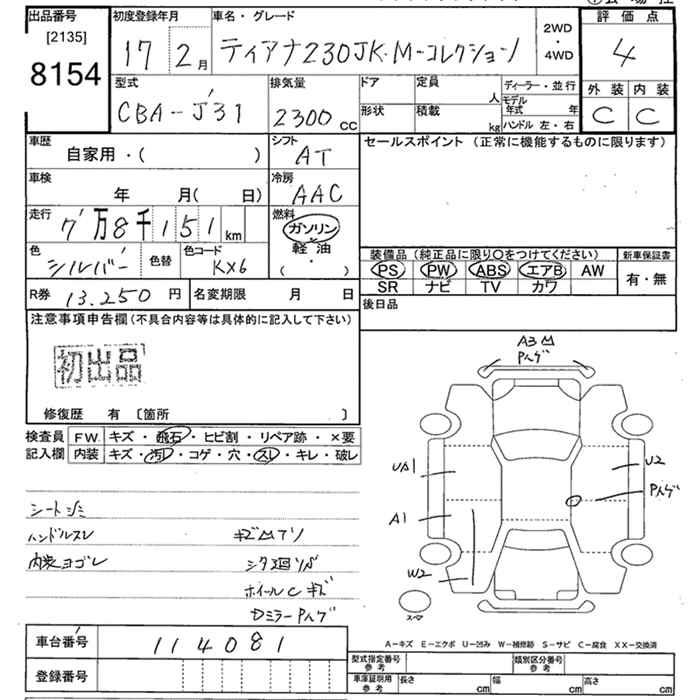 出品番号 初度登録年月 車名・グレード 評価点
[2135]
8154
17 2月 ティアナ230JK・M-コレクション 2WD・4WD 4
型式 排気量 ドア 定員 人 ディーラー・並行 外装 内装
CBA-J31 2300cc 形状 積載 kg モデル年式 年 ハンドル 左・右 C C
車歴 シフト セールスポイント (正常に機能するものに限ります)
自家用・( ) AT
車検 冷房
年 月( 日) AAC
走行 燃料
7万8千151km ガソリン・軽油・( )
色 色替 色コード 装備品(純正品に限り○をつけてください) 新車保証書
シルバー KX6 PS PW ABS エアB AW 有・無
SR ナビ TV カワ
R券 13.250円 名変期限 月 日 後日品
注意事項申告欄(不具合内容等は具体的に記入して下さい)
初出品
修復歴 有 〔箇所 〕
検査員記入欄 FW キズ・飛石・ヒビ割・リペア跡・×要
内装 キズ・汚・コゲ・穴・スレ・キレ・破レ
シートシミ
ハンドルスレ
内装ヨゴレ
ホイールCキズ
DミラーPハゲ
A3
Pハゲ
UA1
U2
Pハゲ
A1
W2
A-キズ E-エクボ U-凹み W-補修跡 S-サビ C-腐食 XX-交換済
車台番号 114081
登録番号
型式指定番号参考 類別区分番号参考
車庫証明用参考 長さ cm 幅 cm 高さ cm